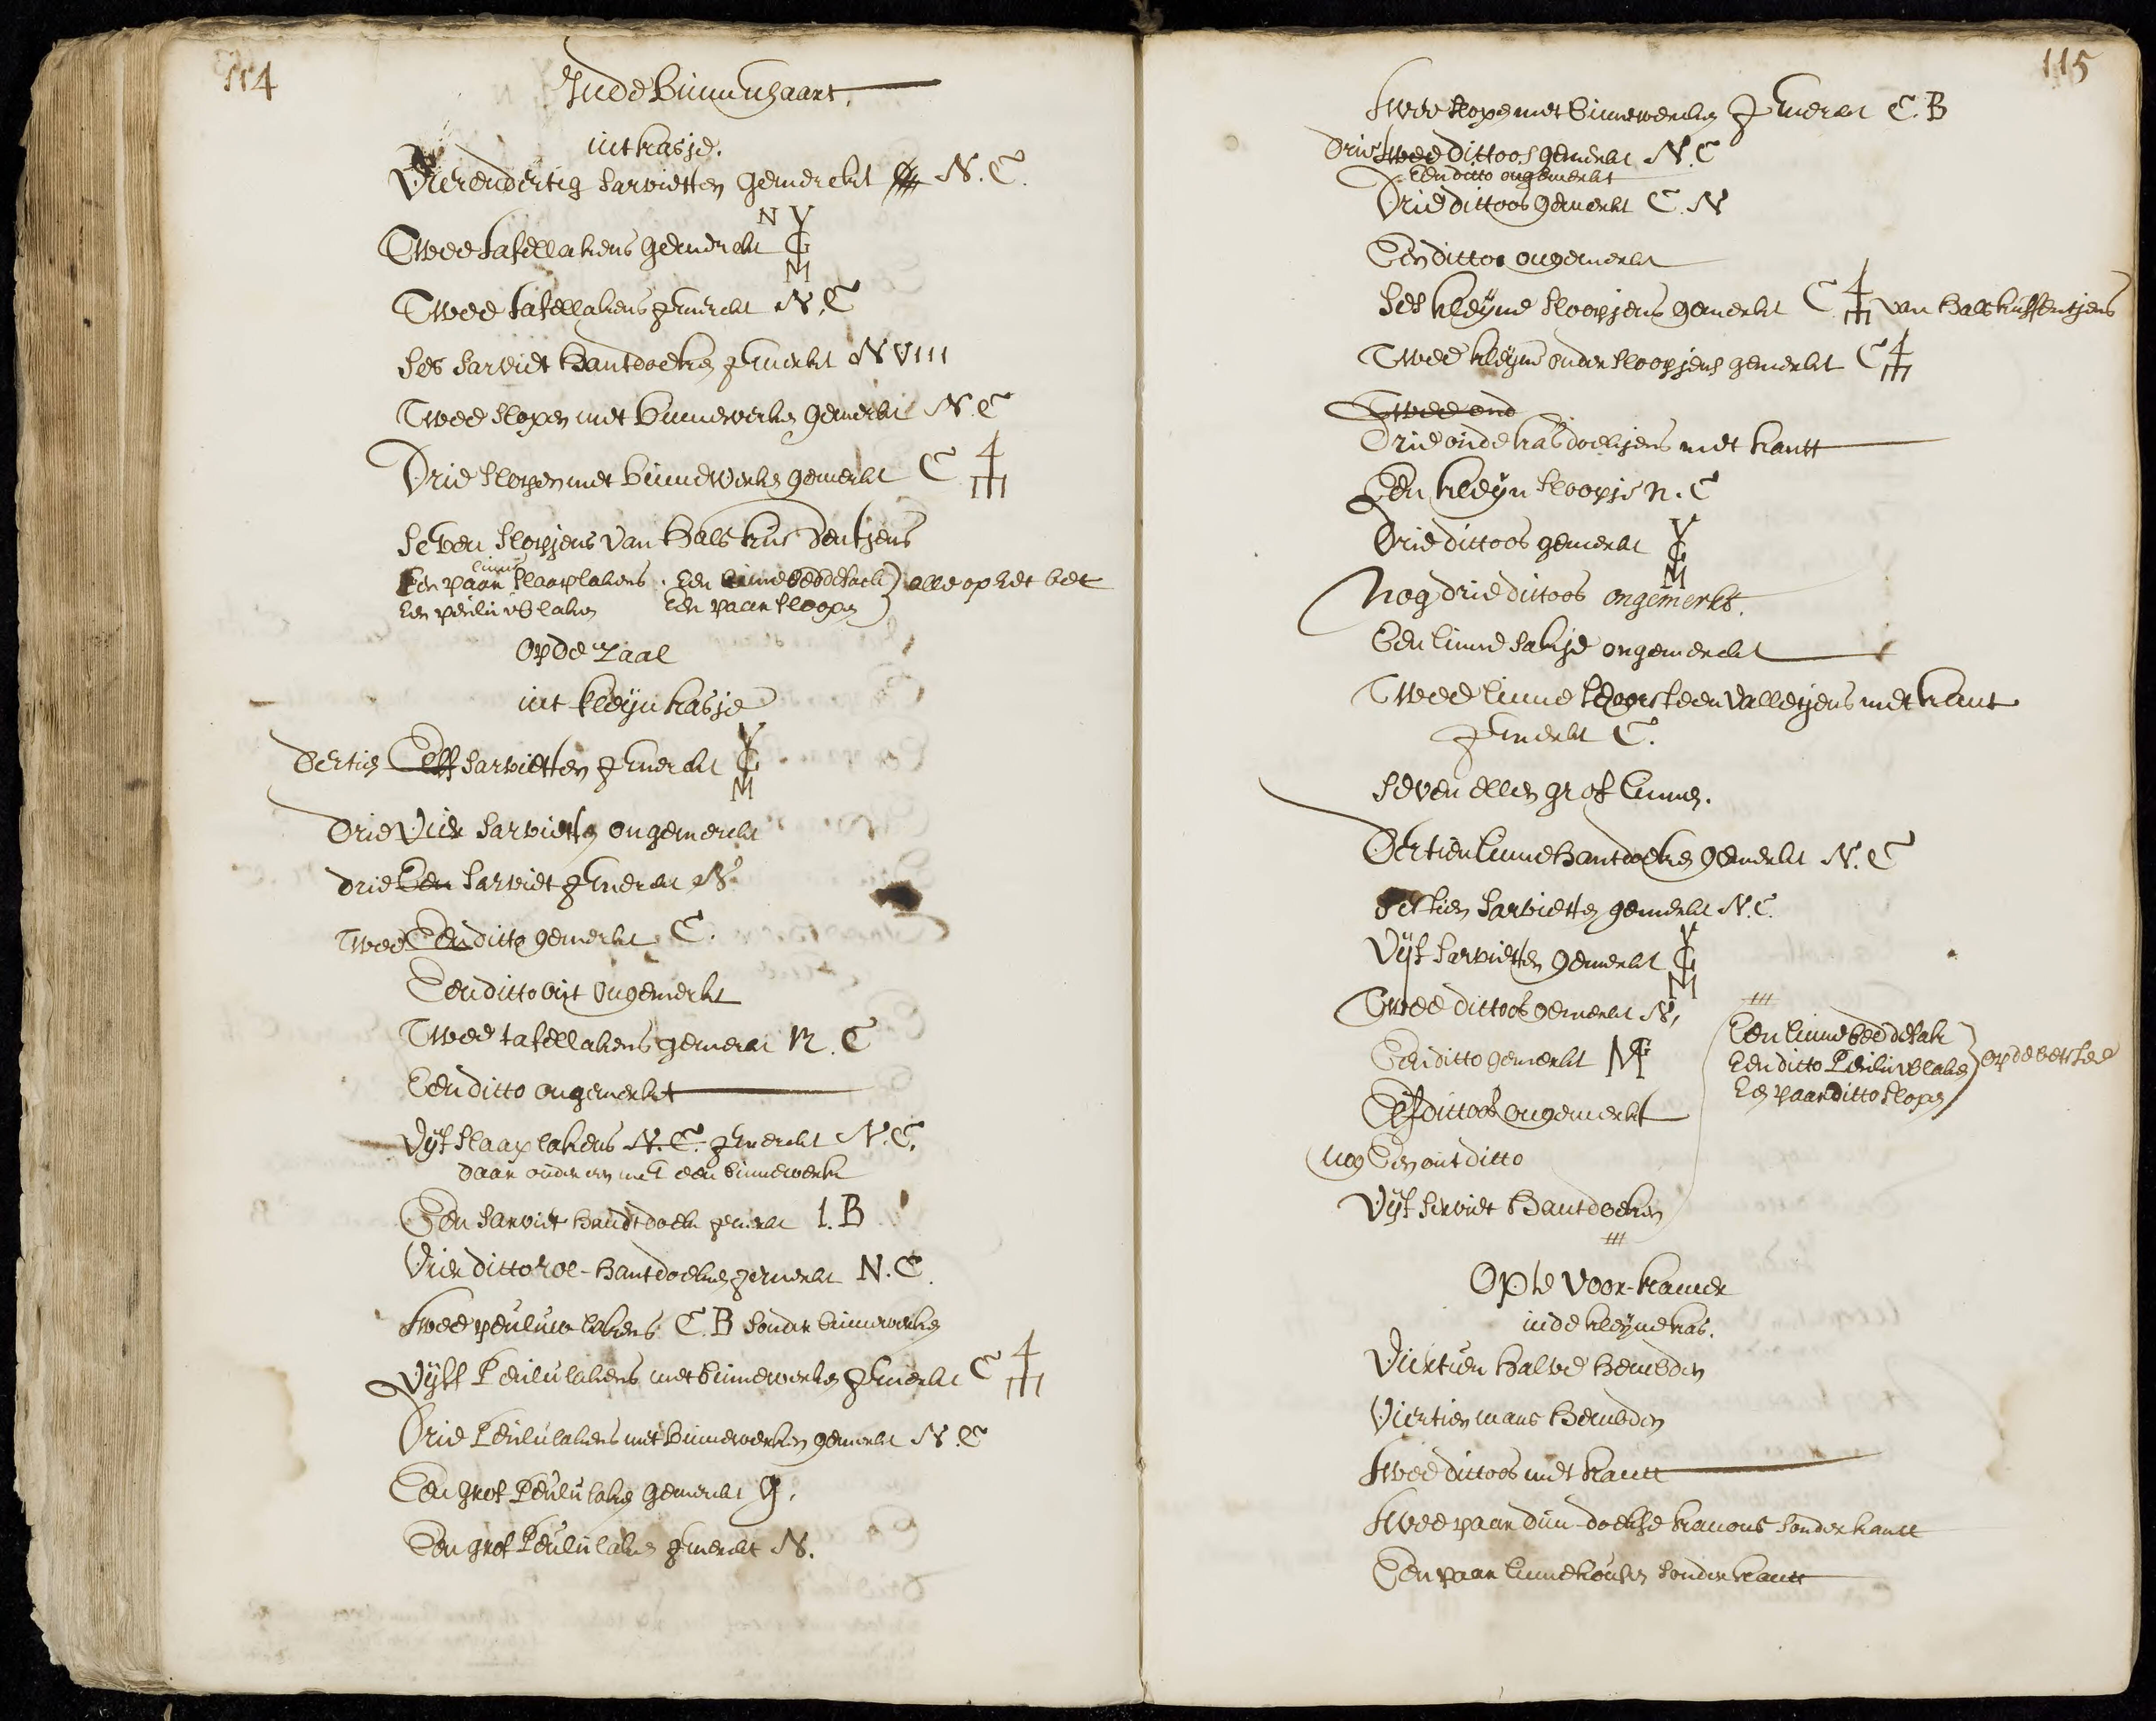 114
Inde Binnenhaart.
int kasje.
Vierendertig sarvietten gemerckt N. C.
Twee tafellakens gemerckt N V C M
Twee tafellakens gemerckt N. C
Ses sarviet hantdoeken gemerckt N VIII
Twee slopen met binnewerken gemerkt N. C
Drie slopen met binnewerken gemerkt C 4
Seven sloopjens van hals kussentjens
Een paar linne slaaplakens. Een linne beddesack) alle op het bet
Een peuluwlaken Een paar sloopen)
Op de Zaal
int kleyn kasje
dertien Elff sarvietten gemerckt V C M
drie Vier sarvietten ongemerckt
drie Een sarviet gemerckt N.
Twee Een ditto gemerkt C.
Een ditto out ongemerkt
Twee tafellakens gemerckt N. C
Een ditto ongemerkt
Vijf slaaplakens N. C. gemerckt N. C.
daar onder een met een binnewerck
Een sarviet handtdoek gemerkt I. B
Vier ditto rol-hantdoeken gemerkt N. C.
twee peuluw lakens C. B sonder binnewerken
Vyff Peululakens met binnewerken gemerkt C 4
Drie Peululakens met binnewerken gemerkt N. C
Een grof Peululaken gemerckt G.
Een grof Peululaken gemerckt N.
115
twee slopen met binnewercken gemerckt C. B
Drie twee dittoos gemerkt N. C
Een ditto ongemerkt
Drie dittoos gemerkt C. N
Een dittoo ongemerkt
Ses kleyne sloopjens gemerkt C 4 van halskussentjens
Twee kleyne onder sloopjens gemerkt C 4
Twee oud
Drie oude kasdoekjens met kantt
Een kleyn sloopje N. C
Drie dittoos gemerkt V C M
Nog drie dittoos ongemerkt.
Een linne sakje ongemerckt
Twee linne schoorsteen valletjens met kant
gemerkt C.
Seven ellen grof linnen.
Dertien linne hantdoeken gemerkt N. C
Sestien sarvietten gemerkt N. C.
Vijf sarvietten gemerkt V C M
Twee dittoos gemerkt N.
Een ditto gemerkt M
Elf dittoos ongemerkt
nog Een out ditto
Vyf serviet hantdoeken
Een linne beddesak
Een ditto Peuluwlaken } op de betstee
Een paar ditto slopen
Op de voor-kamer
in de kleyne kas.
Viertien halve hembden
Viertien mans hembden
twee dittoos met kantt
twee paar dun-doekse kanons sonder kantt
Een paar linne kousen sonder kantt